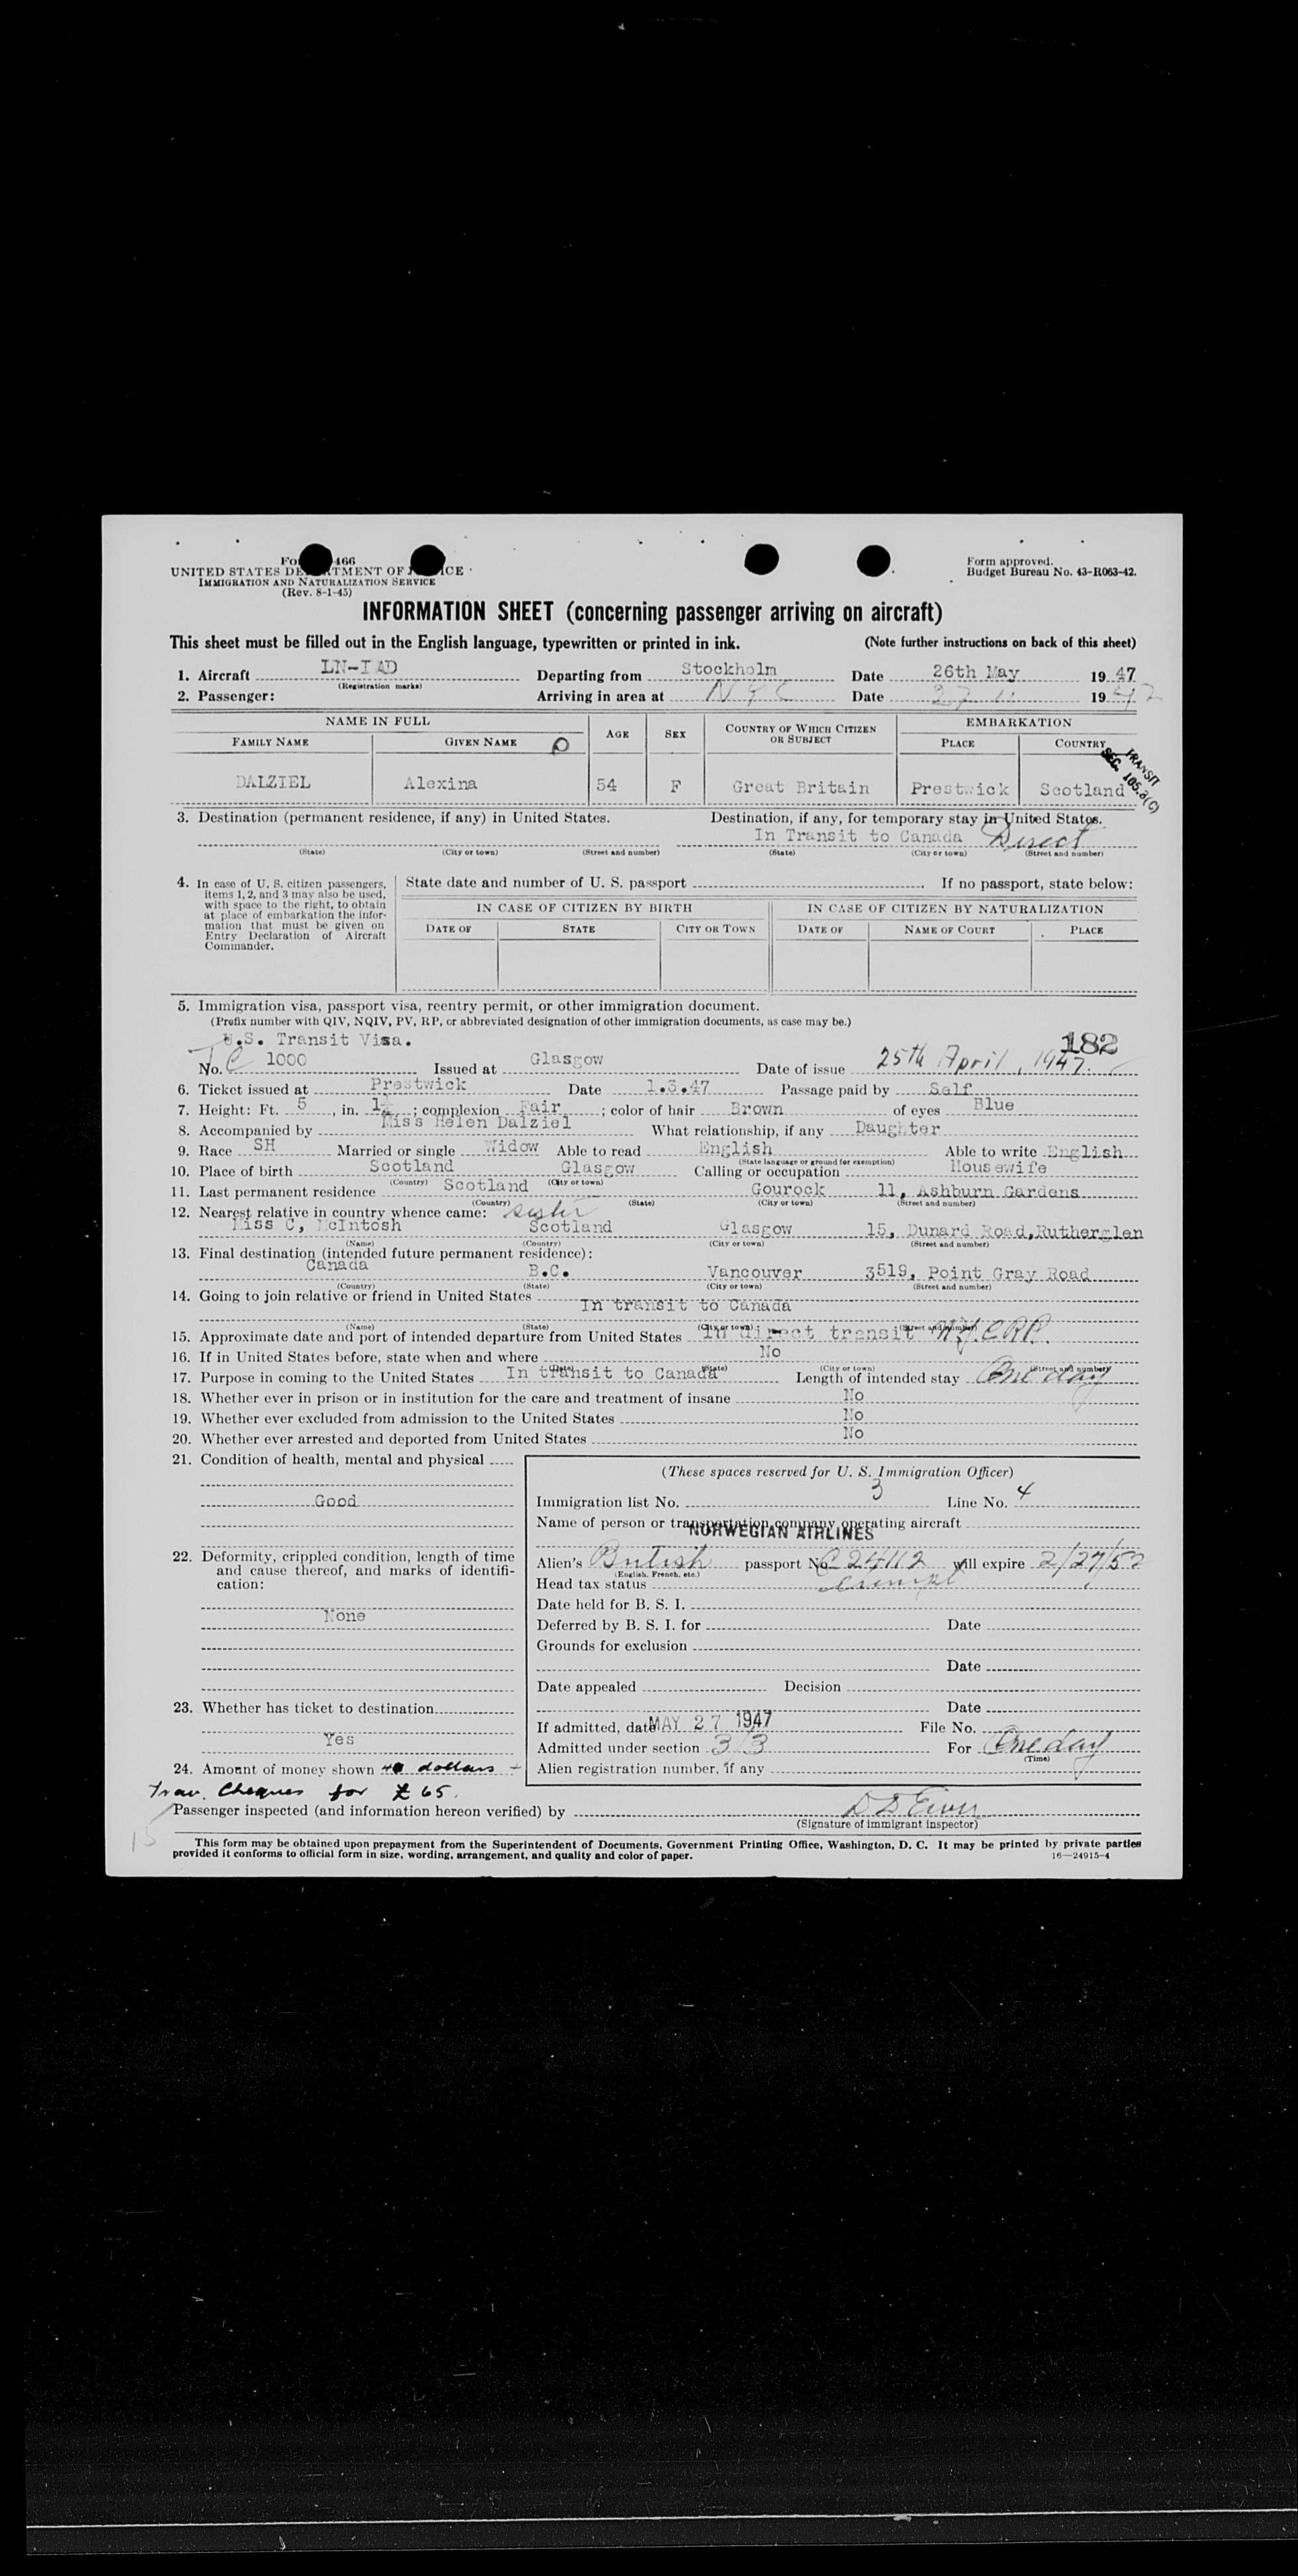 Fo 466
UNITED STATES DE TMENT OF J ICE
IMMIGRATION AND NATURALIZATION SERVICE
(Rev. 8-1-45)
Form approved.
Budget Bureau No. 43-R063-42.
INFORMATION SHEET (concerning passenger arriving on aircraft)
This sheet must be filled out in the English language, typewritten or printed in ink. (Note further instructions on back of this sheet)
1. Aircraft LN-IAD Departing from Stockholm Date 26th May 1947
(Registration marks)
2. Passenger: Arriving in area at NYC Date 27 19 47
NAME IN FULL AGE SEX COUNTRY OF WHICH CITIZEN OR SUBJECT EMBARKATION
FAMILY NAME GIVEN NAME PLACE COUNTRY
TRANSIT SEC. 105.3(C)
DALZIEL Alexina 54 F Great Britain Prestwick Scotland
3. Destination (permanent residence, if any) in United States. Destination, if any, for temporary stay in United States.
In Transit to Canada Direct
(State) (City or town) (Street and number) (State) (City or town) (Street and number)
4. In case of U. S. citizen passengers, items 1, 2, and 3 may also be used, with space to the right, to obtain at place of embarkation the information that must be given on Entry Declaration of Aircraft Commander.
State date and number of U. S. passport If no passport, state below:
IN CASE OF CITIZEN BY BIRTH IN CASE OF CITIZEN BY NATURALIZATION
DATE OF STATE CITY OR TOWN DATE OF NAME OF COURT PLACE
5. Immigration visa, passport visa, reentry permit, or other immigration document.
(Prefix number with QIV, NQIV, PV, RP, or abbreviated designation of other immigration documents, as case may be.)
U.S. Transit Visa. 182
No. TC 1000 Issued at Glasgow Date of issue 25th April, 1947.
6. Ticket issued at Prestwick Date 1.3.47 Passage paid by Self
7. Height: Ft. 5, in. 1½; complexion Fair; color of hair Brown of eyes Blue
8. Accompanied by Miss Helen Dalziel What relationship, if any Daughter
9. Race SH Married or single Widow Able to read English Able to write English
(State language or ground for exemption)
10. Place of birth Scotland Glasgow Calling or occupation Housewife
(Country) (City or town)
11. Last permanent residence Scotland Gourock 11, Ashburn Gardens
(Country) (State) (City or town) (Street and number)
12. Nearest relative in country whence came: sister
Miss C, McIntosh Scotland Glasgow 15, Dunard Road,Rutherglen
(Name) (Country) (City or town) (Street and number)
13. Final destination (intended future permanent residence):
Canada B.C. Vancouver 3519, Point Gray Road
(Country) (State) (City or town) (Street and number)
14. Going to join relative or friend in United States
In transit to Canada
(Name) (State) (City or town) (Street and number)
15. Approximate date and port of intended departure from United States In direct transit
16. If in United States before, state when and where No
(Date) (State) (City or town) (Street and number)
17. Purpose in coming to the United States In transit to Canada Length of intended stay One day
18. Whether ever in prison or in institution for the care and treatment of insane No
19. Whether ever excluded from admission to the United States No
20. Whether ever arrested and deported from United States No
21. Condition of health, mental and physical
Good
22. Deformity, crippled condition, length of time and cause thereof, and marks of identification:
None
23. Whether has ticket to destination
Yes
24. Amount of money shown 40 dollars +
Trav. Cheques for £65.
(These spaces reserved for U. S. Immigration Officer)
Immigration list No. 3 Line No. 4
Name of person or transportation company operating aircraft
NORWEGIAN AIRLINES
Alien's British passport No. C 24112 will expire 2/27/52
(English, French, etc.)
Head tax status exempt
Date held for B. S. I.
Deferred by B. S. I. for Date
Grounds for exclusion
Date
Date appealed Decision
Date
If admitted, date MAY 27 1947 File No.
Admitted under section 3/3 For One day
(Time)
Alien registration number, if any
Passenger inspected (and information hereon verified) by
(Signature of immigrant inspector)
15
This form may be obtained upon prepayment from the Superintendent of Documents, Government Printing Office, Washington, D. C. It may be printed by private parties
provided it conforms to official form in size, wording, arrangement, and quality and color of paper. 16—24915-4